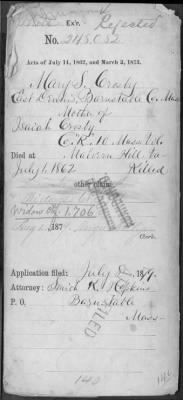 Ex'r.
Rejected
No. 248.052
Acts of July 14, 1862, and March 3, 1873.
Mary S. Crosby
East Dennis, Barnstable Co. Mass
Mother of
Isaiah Crosby
Mass Vols
Died at Malvern Hill, Va
July 1, 1862 Killed
other claim
Widow 1,706.
187
Clerk.
Application filed: July 187
Attorney: Smith K. Hopkins
P. O. Barnstable
Mass
FILED